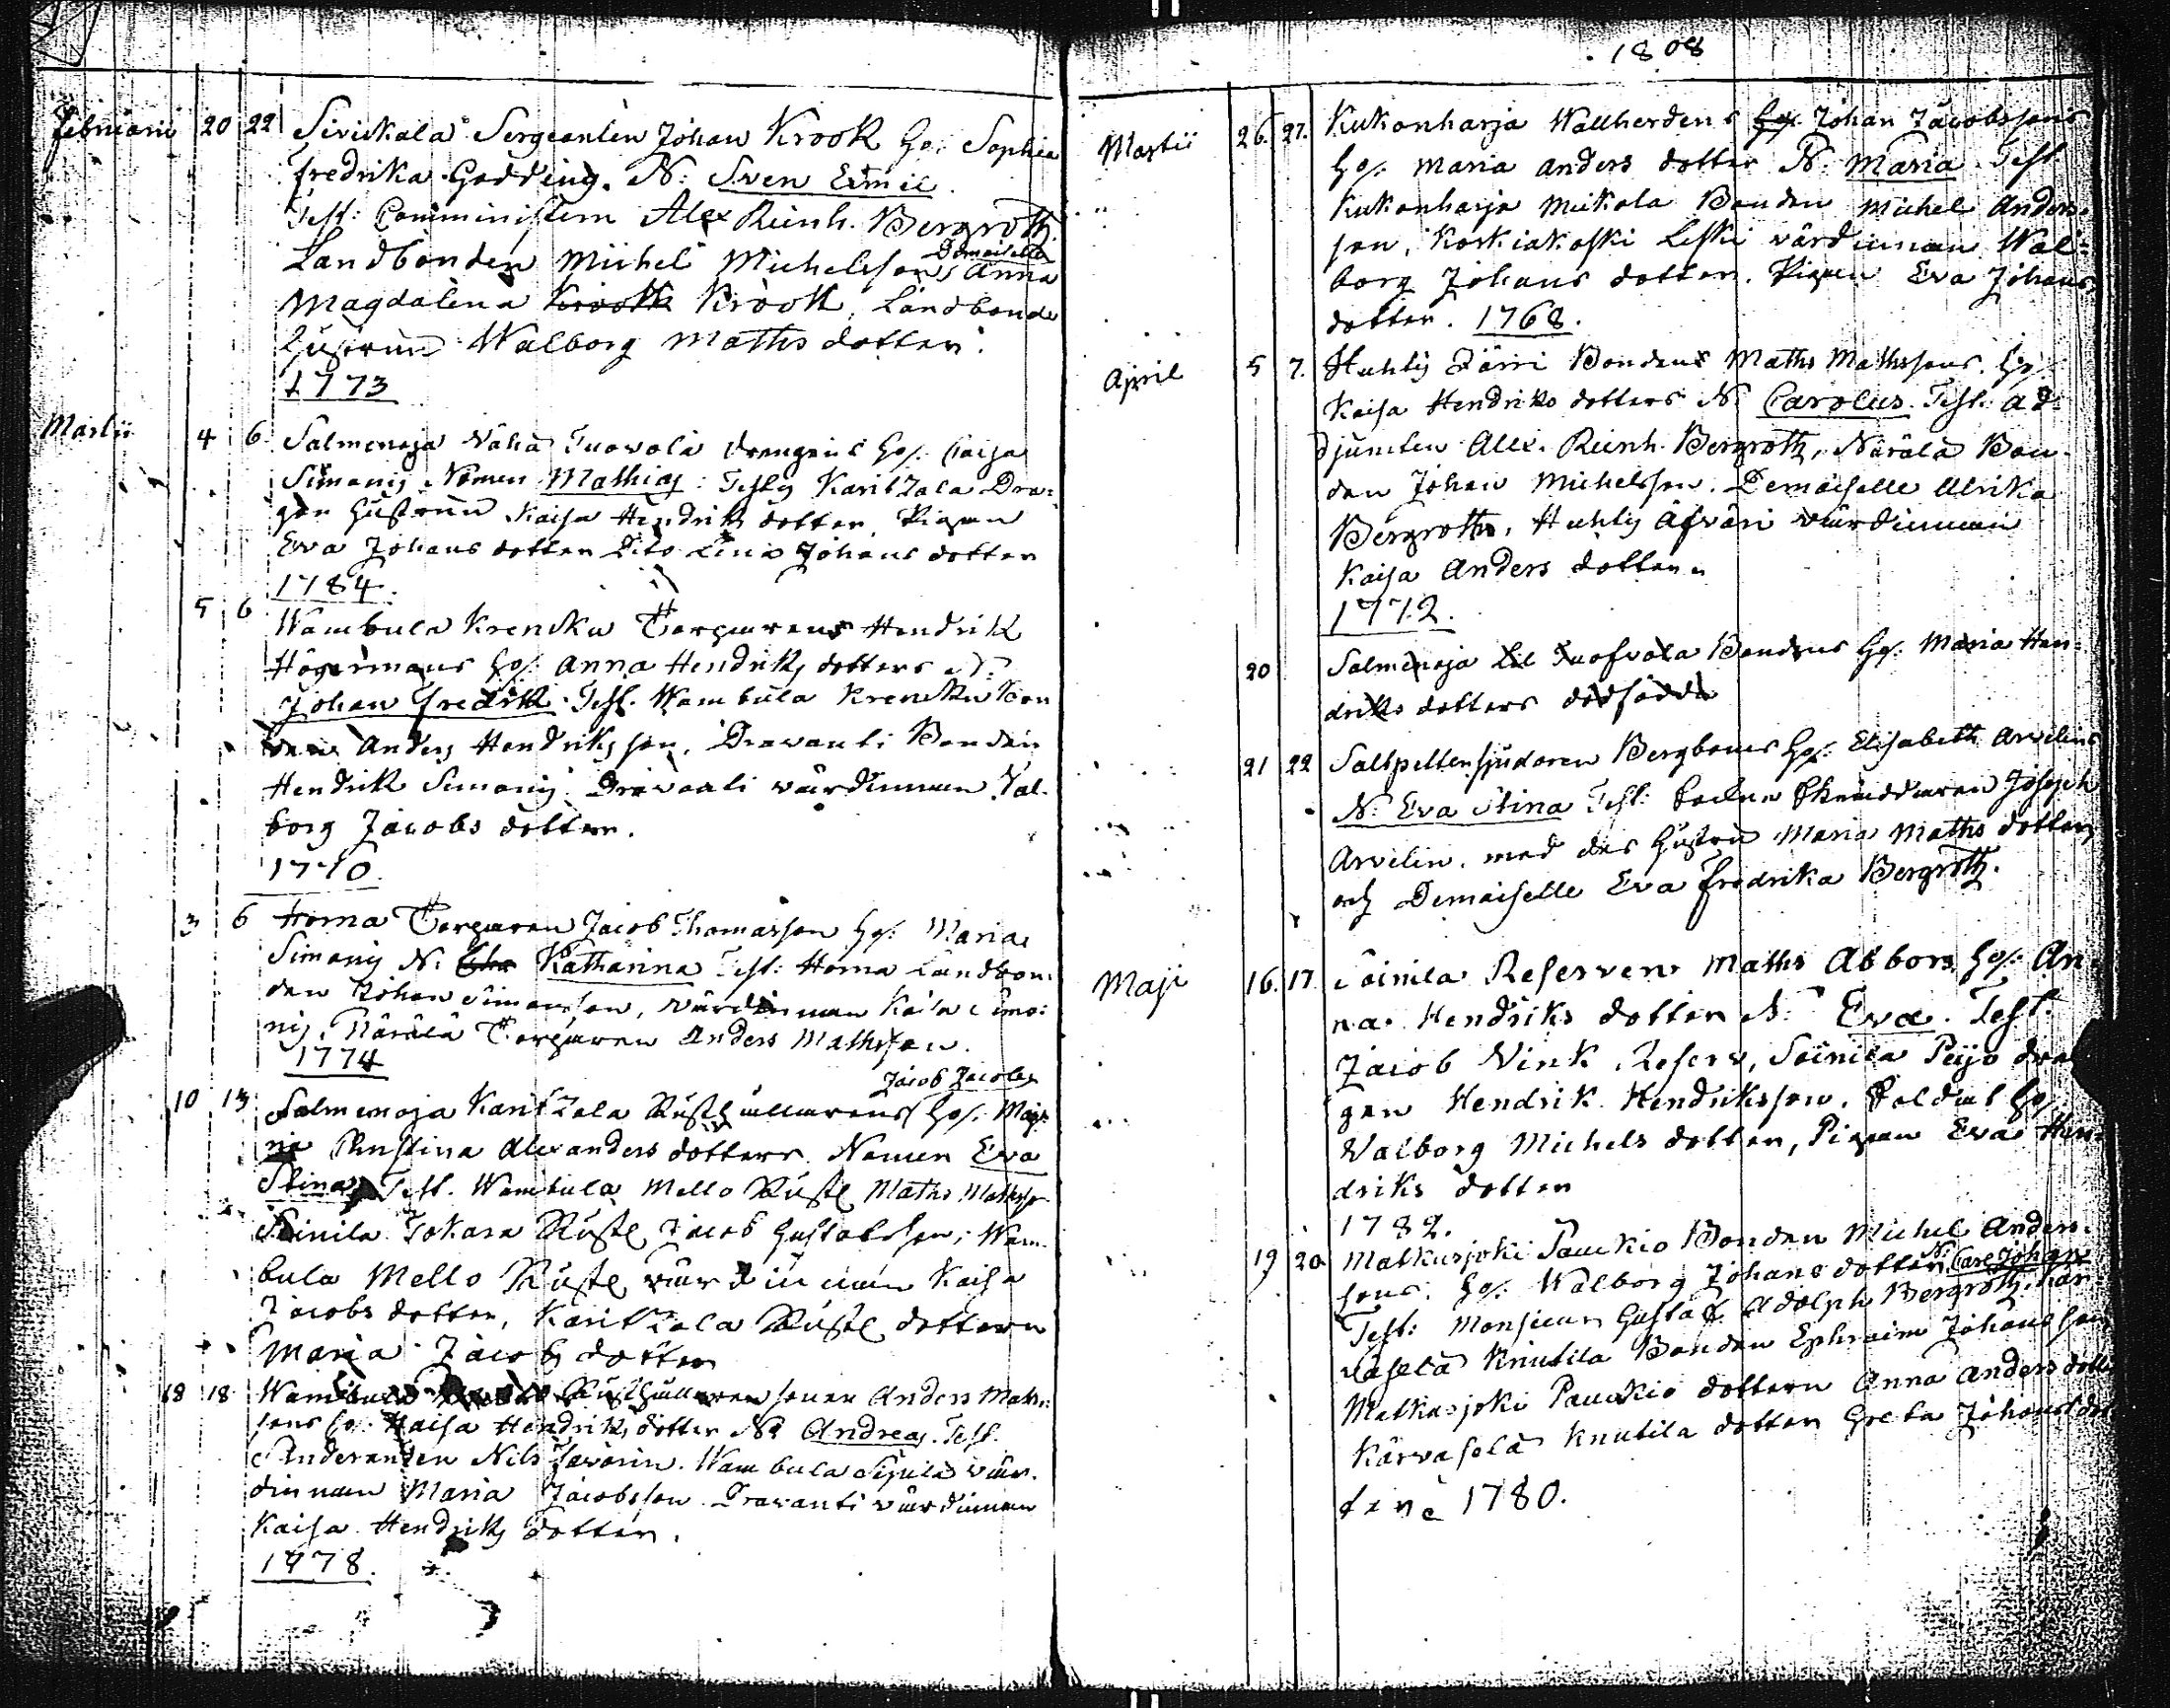 1808
Februarii 20 22 Sirickala Sergeanten Johan Krook Hu: Sophia
fredrika Godding. N: Sven Emil
Test: Comministern Alex Reinh. Bergroth
Landbonden Michel Michelsson, Demoiselle Anna
Magdalena Krook Krook, Landbonde
Hustrun Walborg Maths dotter.
1773
Martii 4 6 Salmenoja Vähä Tuovola drengens Hus. Caisa
Simonis Nomen Mathias: Testes Karitzala Dren:
gen Hustrun Kaisa Hendriks dotter, Pigan
Eva Johans dotter Dito Lena Johans dotter
1784.
5 6 Wambula Krensku Torparens Hendrik
Högermans Hus. Anna Hendriks dotters N:
Johan Fredrik. Test. Wambula Krensku Bon
den Anders Hendriksson, Dravanti Bonden
Hendrik Simonis. Dravanti värdinnan Val-
borg Jacobs dotter.
1770.
3 6 Horna Torparen Jacob Thomasson Hus. Maria
Simonis N. Katharina Test: Horna Landbon:
den Johan Simonsson, värdinnan Kaisa Simo:
nis, Närälä Torparen Anders Mathsson.
1774
10 13 Salmenoja Karitzala Rusthållarens Jacob Jacobs Hus. Maja
Christina Alexanders dotters Nomen Eva
Stina Test. Wambula Mello Rusth Maths Mathsson
Soinila Tokara Rusth Jacob Gustafsson, Wam-
bula Mello Rusth värdinnan Kaisa
Jacobs dotter, Karitzala Rusth dottern
Maria Jacobs dotter
18 18 Wambula Rusthållaren sonen Anders Maths:
sons Hus. Kaisa Hendriks dotter N: Andreas. Test.
Studeranden Nils Idvorin. Wambula Sipilä vär-
dinnan Maria Jacobsson. Dravanti värdinnan
Kaisa Hendriks dotter.
1778.
Martii 26. 27. Kukonharja Wallherdens Johan Jacobssons
Hus. Maria Anders dotter N: Maria Test
Kukonharja Mickola Bonden Michel Anders-
son, Koskiakoski Leski värdinnan Wal-
borg Johans dotter. Pigan Eva Johans
dotter. 1768.
April 5 7. Huhtis Järri Bondens Maths Mathssons. Hus.
Kaisa Hendriks dotters N: Carolus. Test: Ad-
djuncten Alex. Reinh. Bergroth, Närälä Bon-
den Johan Michelsson. Demoiselle Ulrika
Bergroth, Huhtis Äfväri värdinnan
Kaisa Anders dotter.
1772.
20 Salmenoja Lil Tuofvola Bondens Hus. Maria Hen:
driks dotters dödfödde
21 22 Saltpettersjudaren Bergboms Hus. Elisabeth Arvelins
N: Eva Stina Test: Sockne Skräddaren Joseph
Arvelin. med des Hustru Maria Maths dotter
och Demoiselle Eva Fredrika Bergroth.
Maji 16. 17 Soinila Reserven Maths Abbors Hus. An-
na Hendriks dotter N: Eva. Test.
Jacob Vink, Reserv, Soinila Peijo dren
gen Hendrik Hendriksson, Soldat Hus.
Valborg Michels dotter, Pigan Eva Hen-
driks dotter
1782.
19 20 Matkusjoki Pauckio Bonden Michel Anders-
sons. Hus. Walborg Johans dotter N: Carl Johan
Test: Monsieur Gustaf Adolph Bergroth, Kär-
väselä Knutila Bonden Ephraim Johansson
Matkusjoki Pauckio dottern Anna Anders dotter
Kärvaselä Knutila dotter Greta Johans dot
1780.